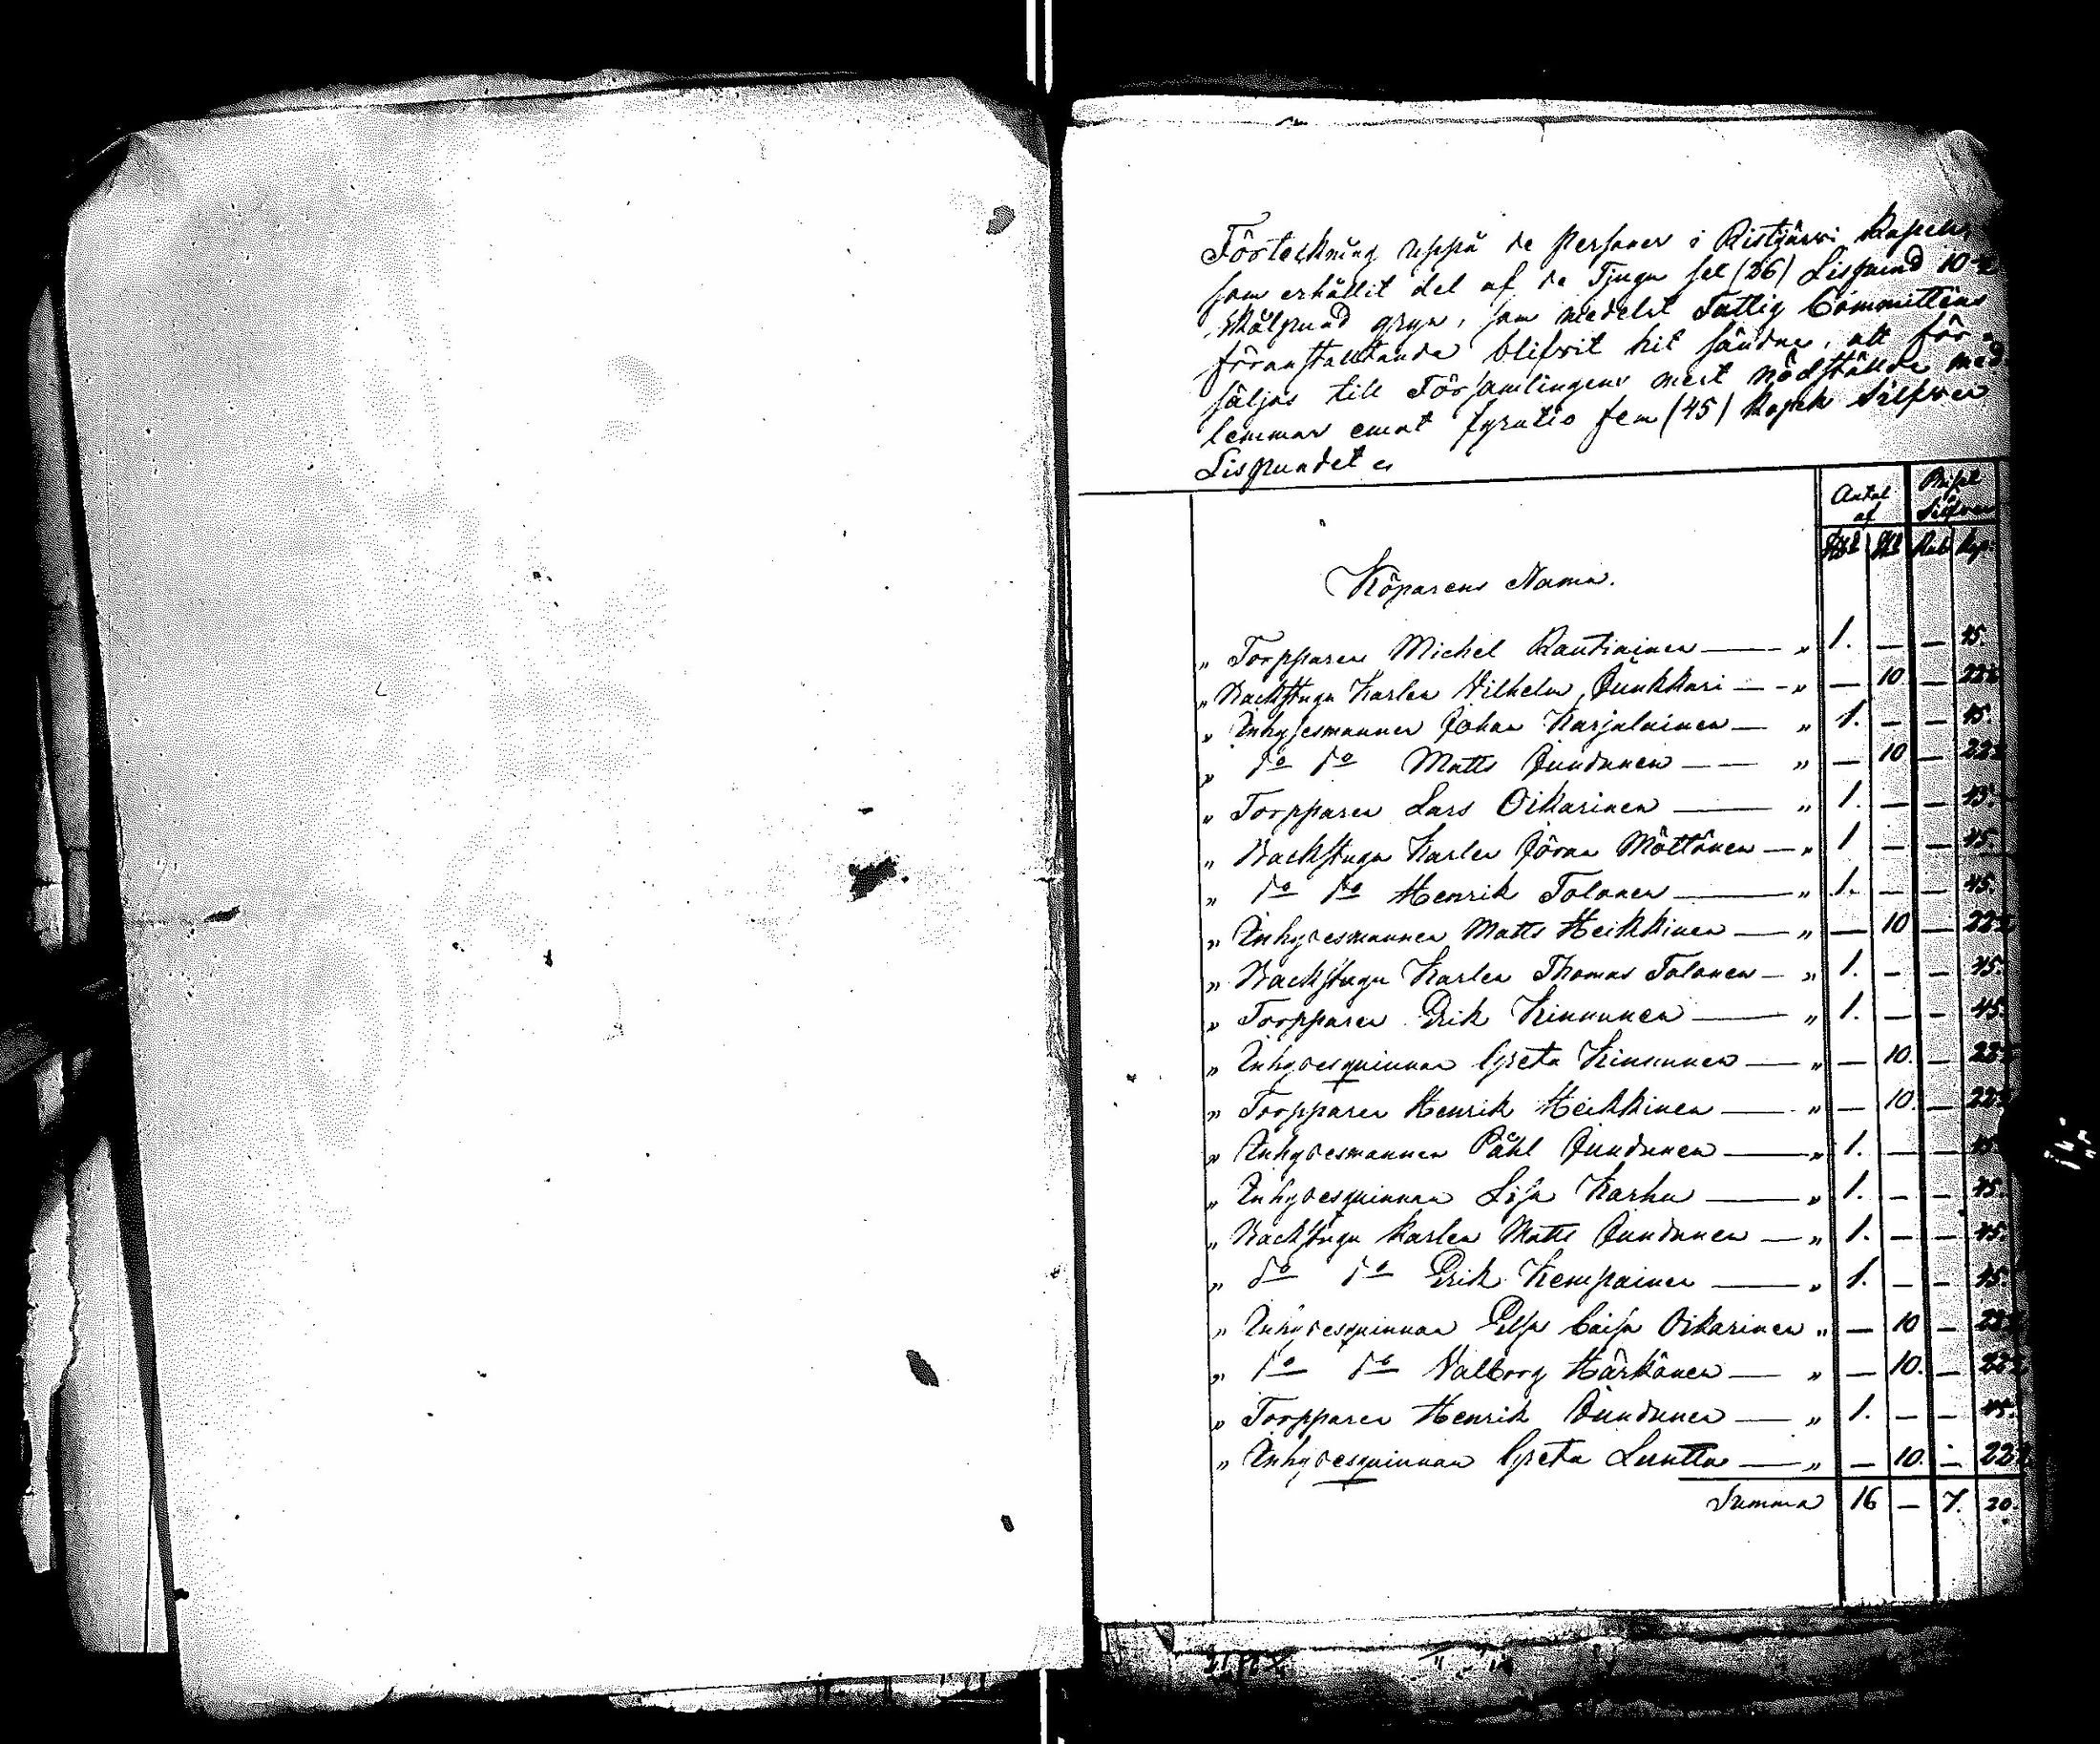 Förteckning uppå de personer i Ristijärwi Kapell,
som erhållit del af de Tjugu sex (26) Lispund 10
skålpund gryn, som medelst Fattig Committéns
föranstaltande blifwit hit sändne, att för-
säljas till Församlingens mest nödstälde med
lemmar emot fyratio fem (45) Kopek Silfwer
Lispundet.
Antal af
Rubel Silfwer
L℔ ℔ Rub Kop.
Köparens Namn.
„ Torpparen Michel Rautiainen — „ 1. — — 45.
„ Backstugu Karlen Vilhelm Junkkari — „ — 10 — 22½
„ Inhysesmannen Johan Karjalainen — „ 1. — — 45.
„ do do Matts Jundunen — „ — 10 — 22½
„ Torpparen Lars Oikarinen — „ 1. — — 45.
„ Backstugu Karlen Jöran Möttönen — „ 1 — — 45.
„ do do Henrik Tolonen — „ 1. — — 45.
„ Inhysesmannen Matts Heikkinen — „ — 10 — 22½
„ Backstugu Karlen Thomas Tolonen — „ 1. — — 45.
„ Torpparen Erik Kinnunen — „ 1. — — 45.
„ Inhysesquinnan Greta Kinnunen — „ — 10. — 22½
„ Torpparen Henrik Heikkinen — „ — 10. — 22½
„ Inhysesmannen Påhl Jundunen — „ 1. — — 45.
„ Inhysesquinnan Lisa Karhu — „ 1. — — 45.
„ Backstugu Karlen Matts Jundunen — „ 1. — — 45.
„ do do Erik Kempainen — „ 1. — — 45.
„ Inhysesquinnan Elsa Caisa Oikarinen „ — 10 — 22½
„ do do Valborg Härkönen — „ — 10. — 22½
„ Torpparen Henrik Jundunen — „ 1. — — 45.
„ Inhysesquinnan Greta Luntta — „ — 10. — 22½
Summa 16 — 7. 20.